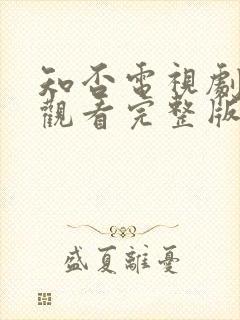 知否電視劇
觀看完整版
盛夏離憂